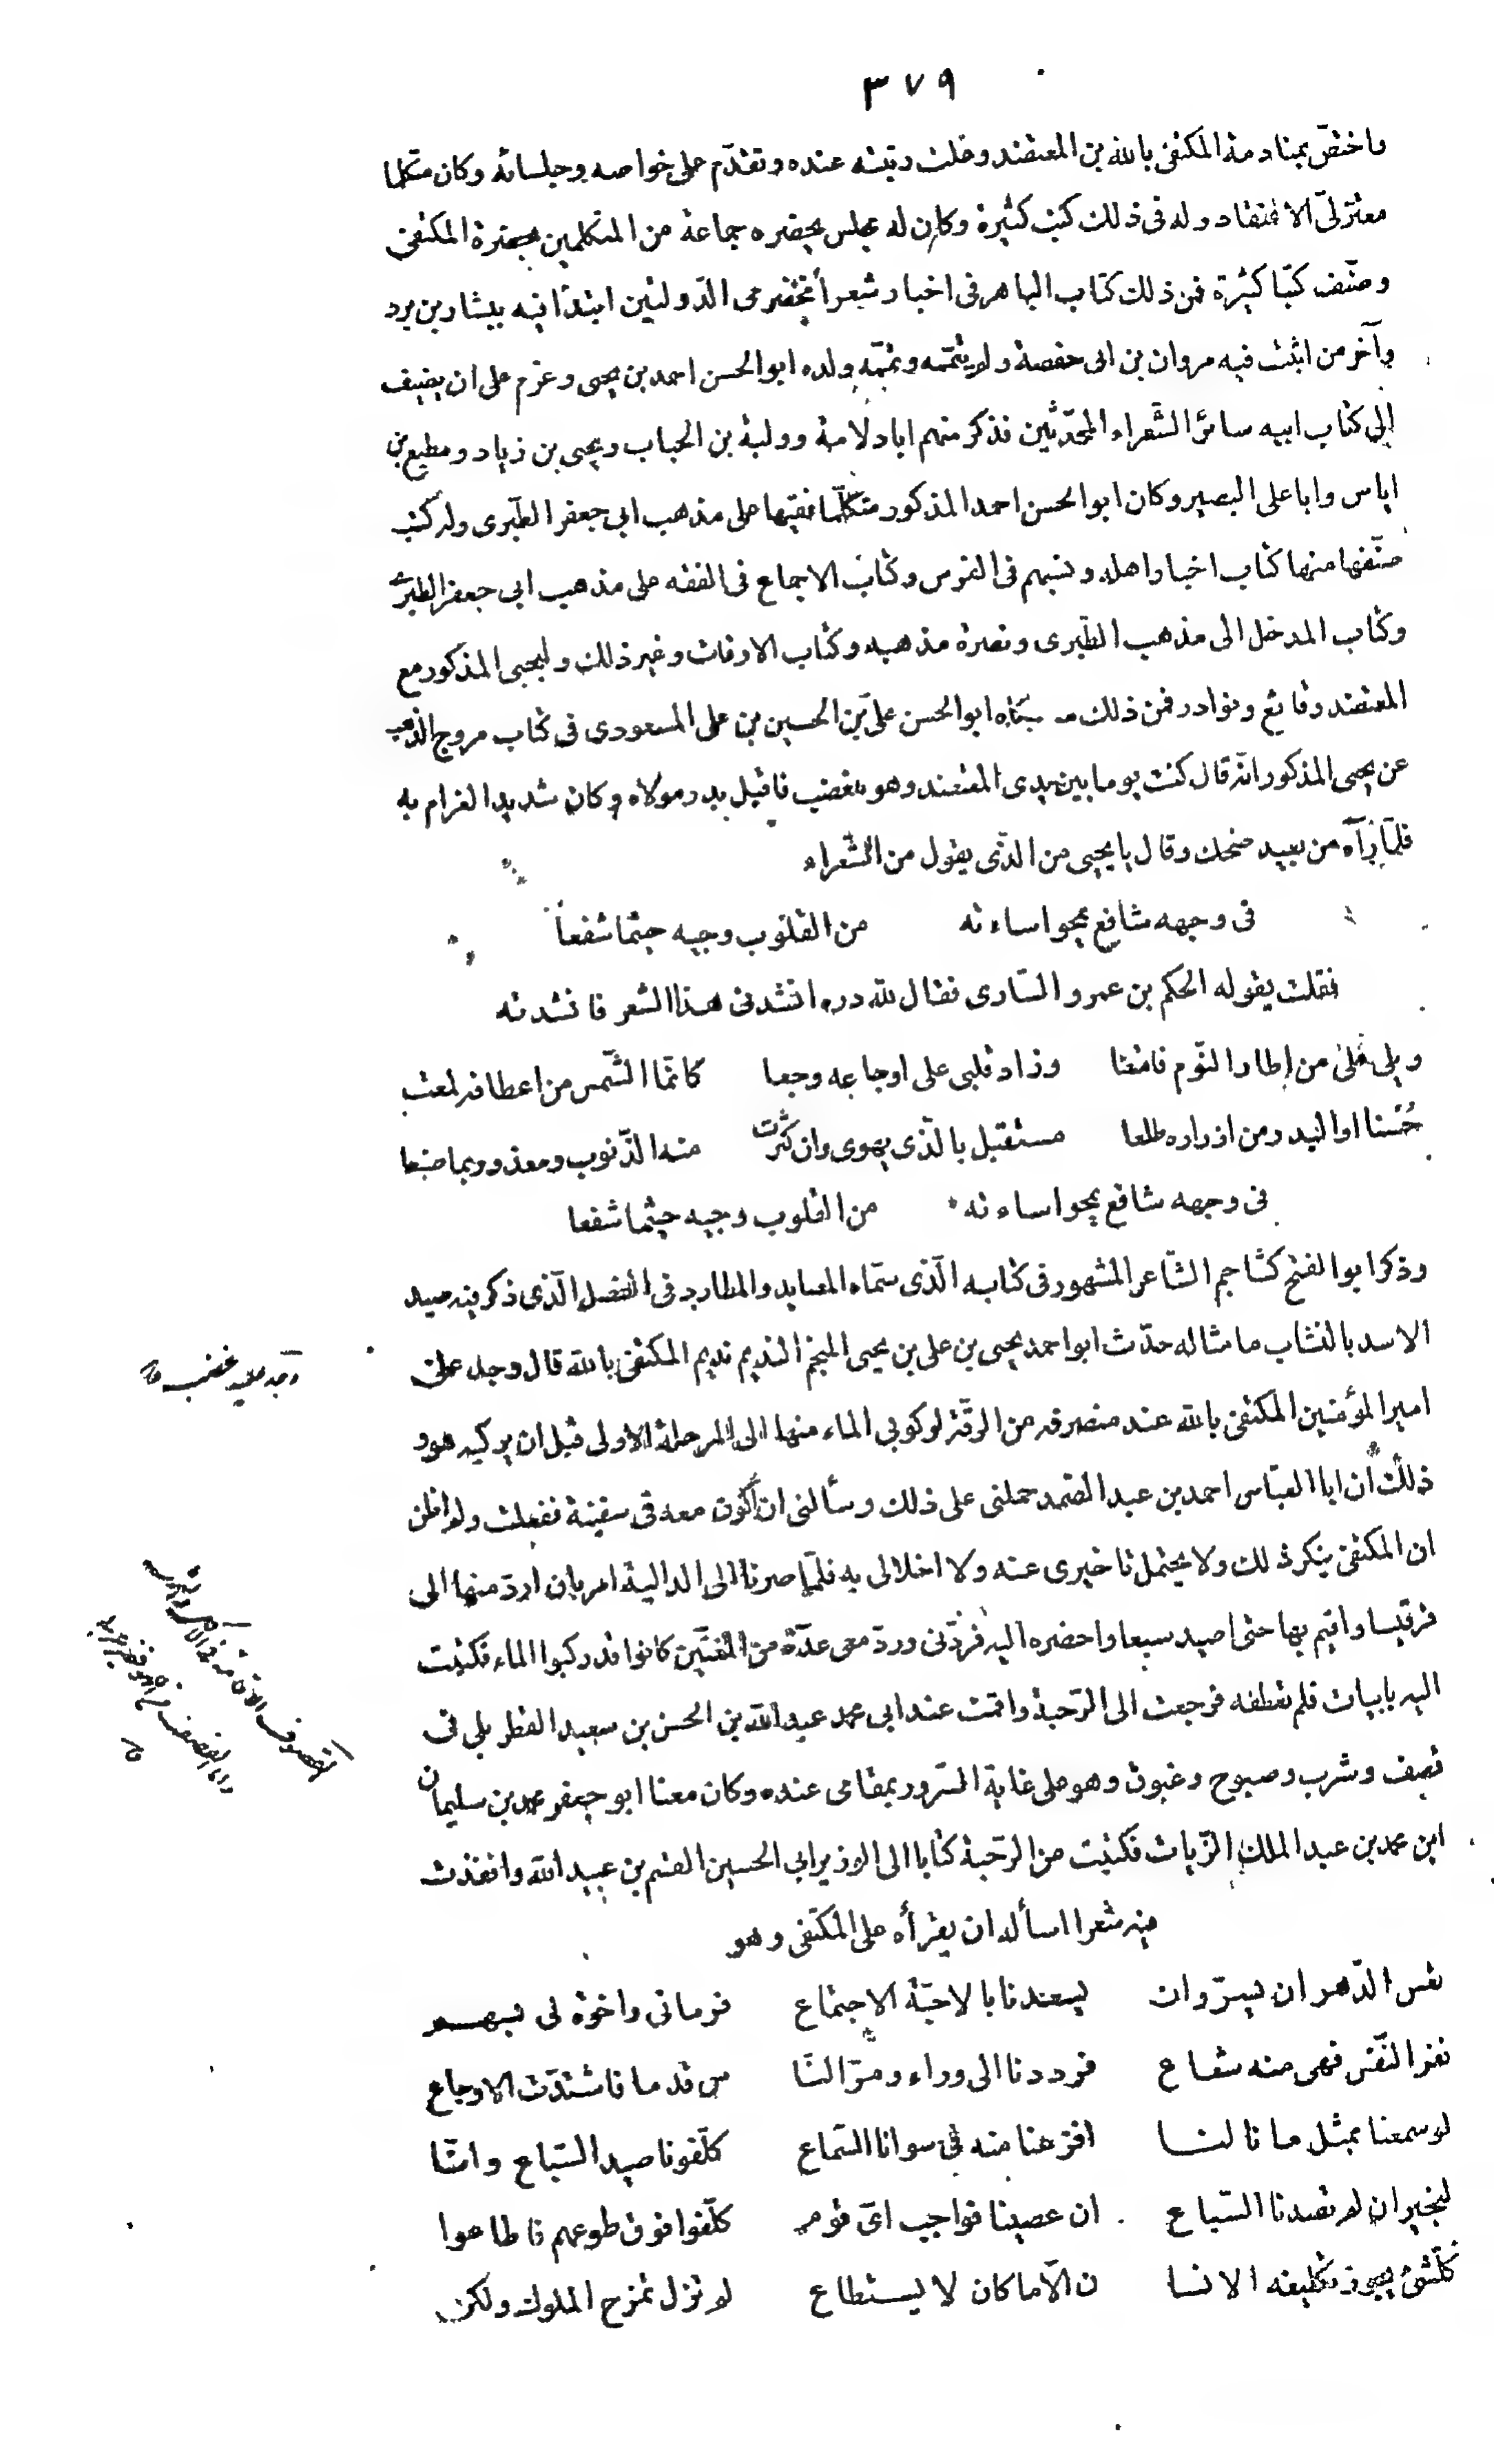 ٣٧٩
واختصّ بمنادمة المكتفى بالله بن المعتضد وعلت رتبته عنده وتقدّم على خواصه وجلسائه وكان متكلما
معتزلىّ الاعتقاد وله فى ذلك كتب كثيرة وكان له مجلس يحضره جماعة من المتكلمين بحضرة المكتفى
وصنّف كتبا كثيرة فمن ذلك كتاب الباهر فى اخبار شعرأ مخضرمى الدّولتين ابتدأ فيه ببشار بن برد
وآخر من اثبت فيه مروان بن ابى حفصة ولم يتمّمه وتمّمه ولده ابو الحسن احمد بن يحيى وعزم على ان يضيف
الى كتاب ابيه سائر الشّعراء المحدّثين فذكر منهم ابا دلامة ووالبة بن الحباب ويحيى بن زياد ومطيع بن
اياس وابا على البصير وكان ابو الحسن احمد المذكور متكلّما فقيها على مذهب ابى جعفر الطّبرى وله كتب
صنّفها منها كتاب اخبار اهله ونسبهم فى الفرس وكتاب الاجماع فى الفقه على مذهب ابى جعفر الطبرى
وكتاب المدخل الى مذهب الطّبرى ونصرة مذهبه وكتاب الاوقات وغير ذلك وليحيى المذكور مع
المعتضد وقايع ونوادر فمن ذلك ابو الحسن علىّ بن الحسين بن على المسعودى فى كتاب مروج الذهب
عن يحيى المذكور انّه قال كنت يوما بين يدى المعتضد وهو مغضب فاقبل بدر مولاه وكان شديد الغرام به
فلمّا رآه من بعيد ضحك وقال يا يحيى من الذّى يقول من الشّعراء
فى وجهه شافع يمحو اساءته من القلوب وجيه حيثما شفعاً
فقلت يقوله الحكم بن عمرو السّارى فقال لله دره انشدنى هذا الشعر فانشدته
ويلى على من اطار النّوم فامتنعا وزاد قلبى على اوجاعه وجعا كانّما الشّمس من اعطافه لمعت
حُسْنا او البدر من ازراره طلعا مستقبل بالّذى يهوى وان كثرت منه الذّنوب ومعذور بما صنعا
فى وجهه شافع يمحو اساءته من القلوب وجيه حيثما شفعا
وذكر ابو الفتح كشاجم الشّاعر المشهور فى كتابه الّذى سمّاه المصايد والمطارد فى الفصل الّذى ذكر فيه صيد
الاسد بالنشّاب ما مثاله حدّث ابو احمد يحيى بن على بن يحيى المنجم النديم نديم المكتفى بالله قال وجد علىّ
وجد عليه غضب
امير المؤمنين المكتفى بالله عند منصرفه من الرقّة لركوبى الماء منها الى المرحلة الاولى قبل ان يركبه هو و
ذلك أن ابا العبّاس احمد بن عبد الصّمد حملنى على ذلك وسألنى ان اكون معه فى سفينة ففعلت ولم اظن
ان المكتفى ينكر ذلك ولا يحتمل تاخيرى عنه ولا اخلالى به فلمّا صرنا الى الدالية امر بان اردّ منها الى
قرقيسا واقيم بها حتى اصيد سبعا واحضره اليه فردّنى وردّ معى عدّة من المغنّين كانوا قد ركبوا الماء فكتبت
اليه بابيات فلم تعطفه فرجعت الى الرّحبة واقمت عند ابى محمد عبد الله بن الحسن بن سعيد القطربلى فى
قصف وشرب وصبوح وغبوق وهو على غاية السّرور بمقامى عنده وكان معنا ابو جعفر محمد بن سليمان
ابن محمد بن عبد الملك الزّيات فكتبت من الرّحبة كتابا الى الوزير ابى الحسين القسم بن عبيد الله وانفذت
فيه شعرا اسأله ان يقرأه على المكتفى وهو
نفس الدّهر ان يسرّ وان يسعدنا بالاحبّة الاجتماع فرمانى واخوة لى بسهم
نفر النّفس فهى منه شعاع فرددنا الى وراء ومرّ النّا س قدما فاشتدّت الاوجاع
لو سمعنا بمثل ما نالنا افزعنا منه فى سوانا السّماع كلّفونا صيد السّباع وانّا
لبخير ان لم تصدنا السّباع ان عصينا فواجب اىّ قوم كلّفوا فوق طوعهم فاطاعوا
كلّ شئ يجوز تكليفه الانسا ن الّا ما كان لا يستطاع لم تزل تمزح الملوك ولكن